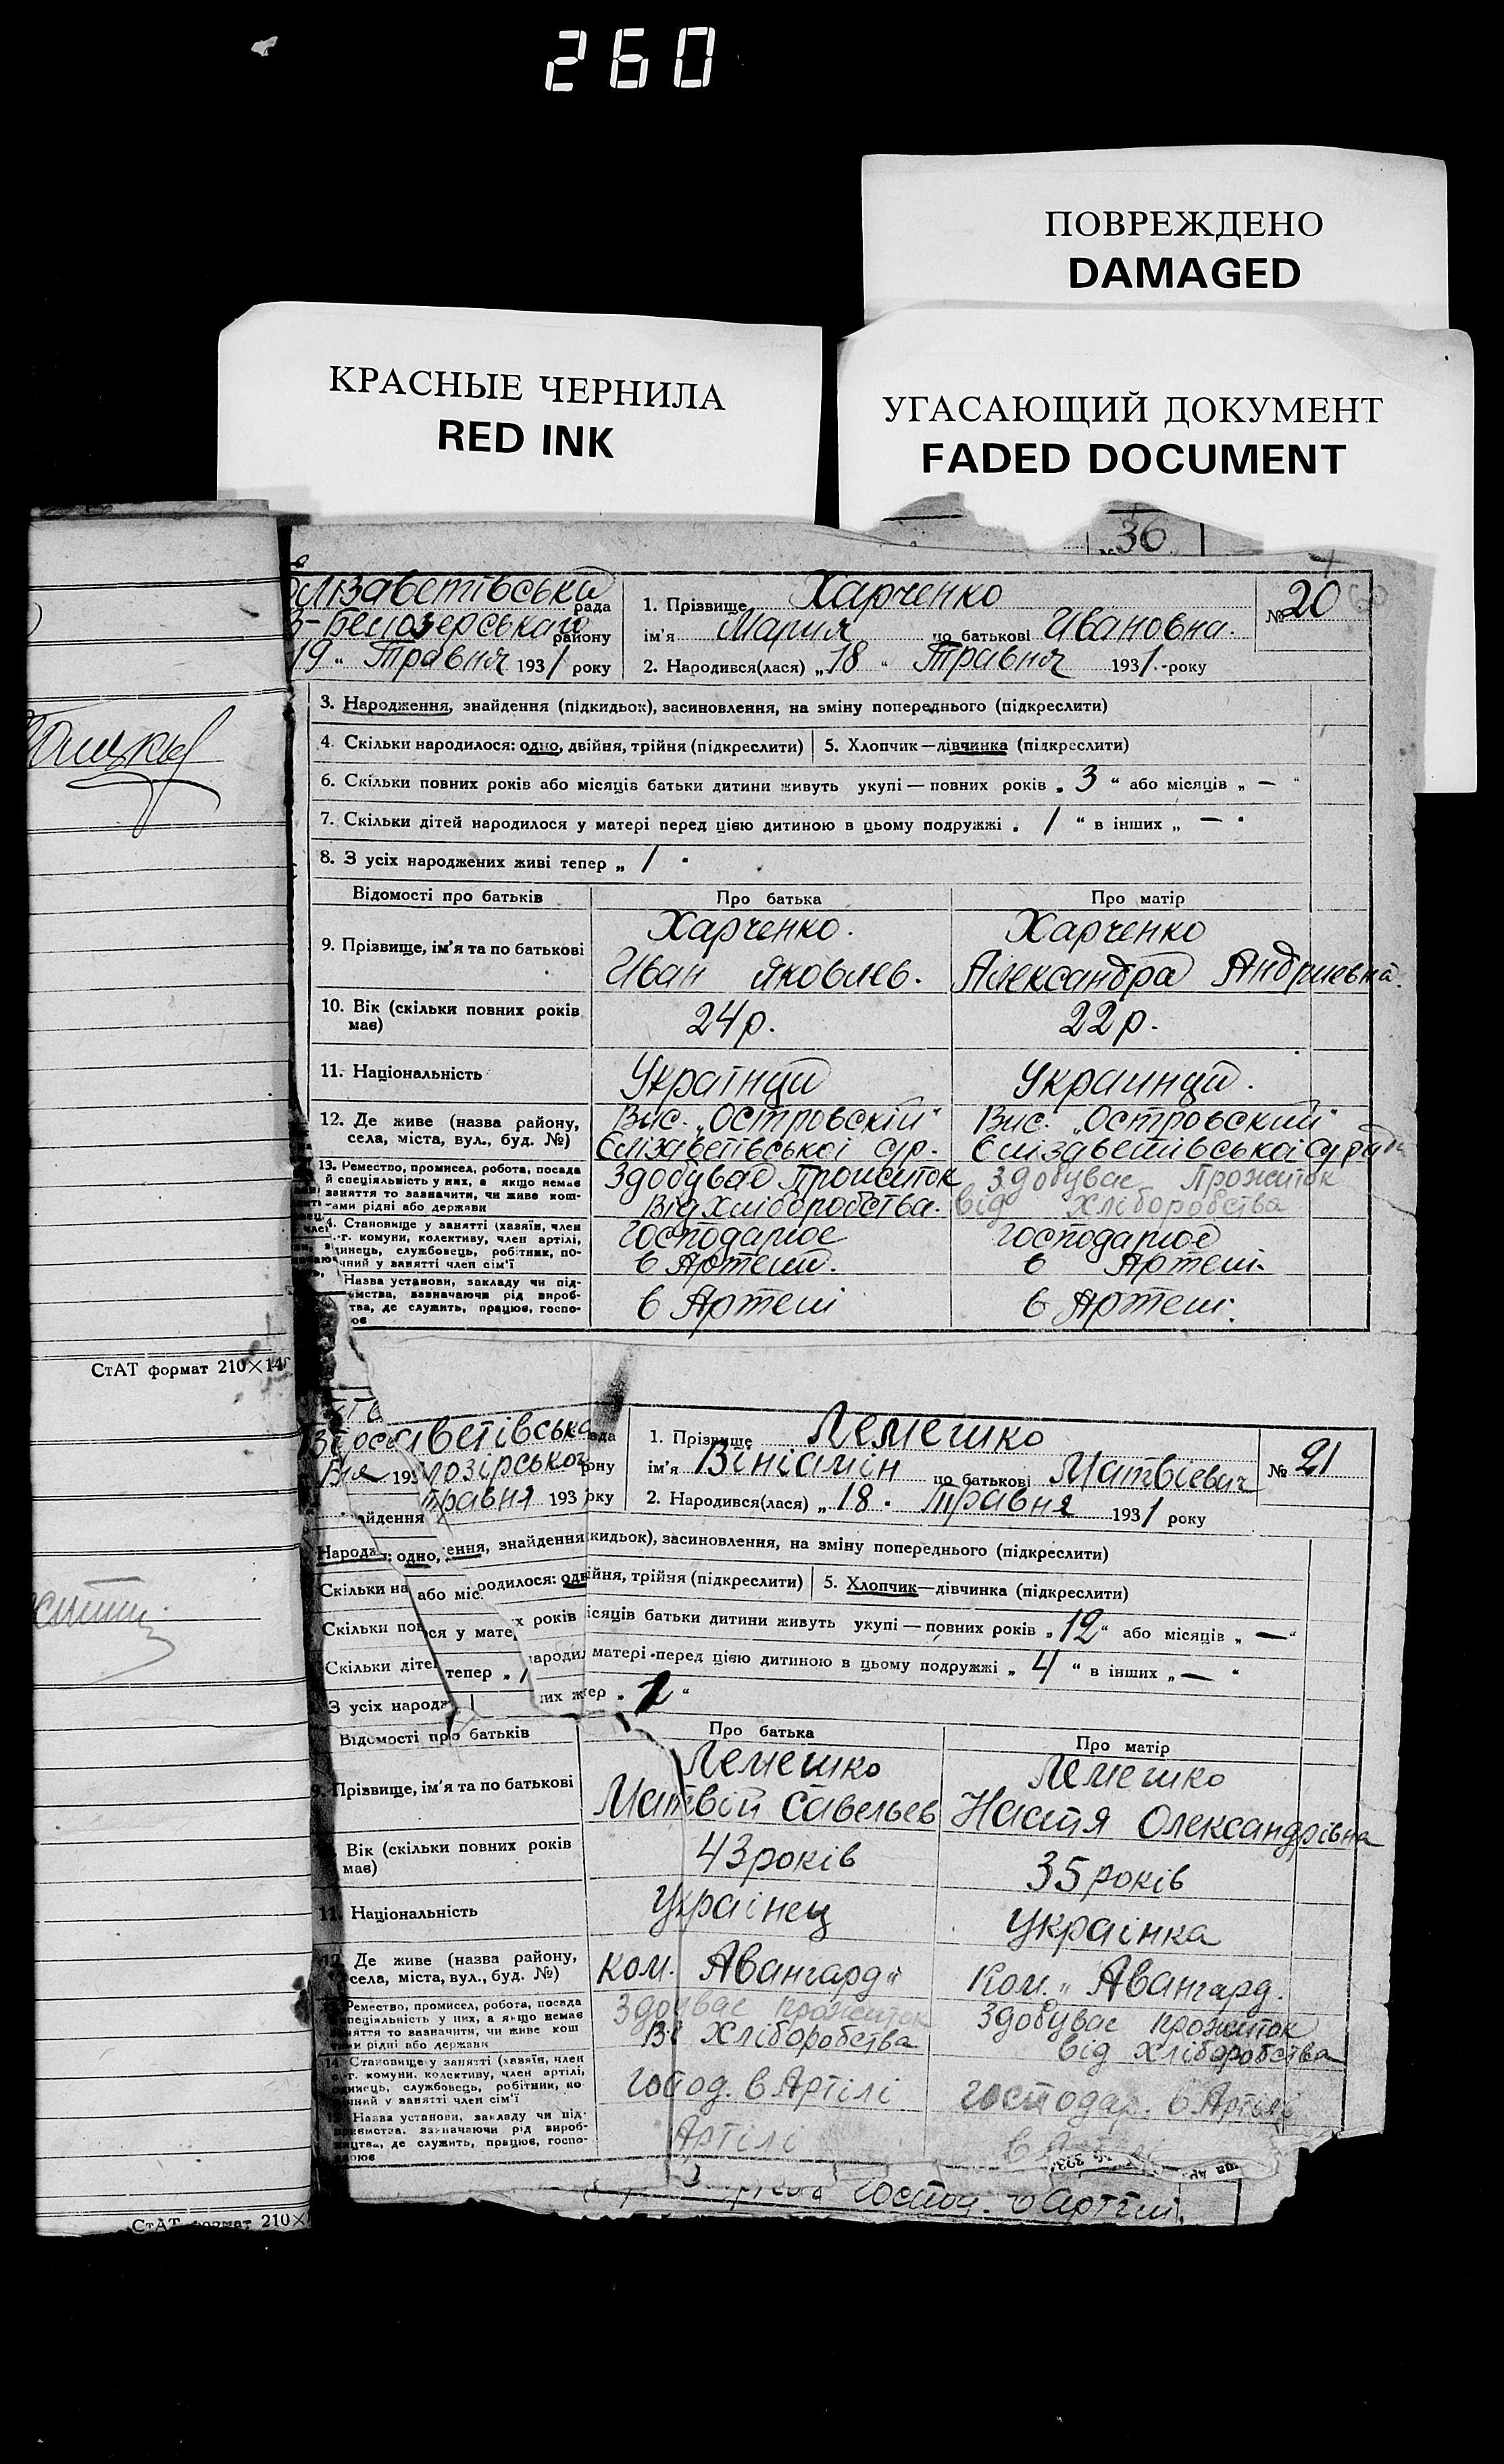 260
ПОВРЕЖДЕНО
DAMAGED
КРАСНЫЕ ЧЕРНИЛА
RED INK
УГАСАЮЩИЙ ДОКУМЕНТ
FADED DOCUMENT
36
лізаветівська рада
В-Белозерського району
19 " Травня 1931 року
1. Прізвище Харченко
ім'я Мария по батькові Ивановна.
2. Народився(лася) „ 18 " Травня 1931.-року
№ 20
3. Народження, знайдення (підкидьок), засиновлення, на зміну попереднього (підкреслити)
4. Скільки народилося: одно, двійня, трійня (підкреслити) 5. Хлопчик—дівчинка (підкреслити)
6. Скільки повних років або місяців батьки дитини живуть укупі — повних років „ 3 " або місяців „ — "
7. Скільки дітей народилося у матері перед цією дитиною в цьому подружжі „ 1 " в інших „ — "
8. З усіх народжених живі тепер „ 1 "
Відомості про батьків Про батька Про матір
9. Прізвище, ім'я та по батькові
Харченко. Харченко
Иван Яковлев. Александра Андриевна.
10. Вік (скільки повних років має) 24 р. 22 р.
11. Національність Українци Украинци.
12. Де живе (назва району, села, міста, вул., буд. №)
Вис. „Островскій" Вис. „Островский"
Єлізаветівської с/р. Єлізаветівської с/ради
13. Ремество, промисел, робота, посада й спеціяльність у них, а якщо немає заняття то зазначити, чи живе коштами рідні або держави
Здобуває Прожиток Здобуває Прожиток
від Хліборобства. від Хліборобства
4. Становище у занятті (хазяїн, член
.-г. комуни, колективу, член артілі,
динець, службовець, робітник, по-
чний у занятті член сім'ї
Господарює господарює
в Артели. в Артелі.
Назва установи, закладу чи під-
ємства, зазначаючи рід вироб-
тва, де служить, працює, госпо-
ює
в Артелі в Артелі.
СтАТ формат 210×14
аветівська ада
лозірського ону
Травня 193 оку
1. Прізвище Лемешко
ім'я Вініамін по батькові Матвієвич
2. Народився(лася) „ 18. Травня 1931 року
№ 21
ення, знайдення кидьок), засиновлення, на зміну попереднього (підкреслити)
Скільки на родилося: одвійня, трійня (підкреслити) 5. Хлопчик—дівчинка (підкреслити)
Скільки пов х років ісяців батьки дитини живуть укупі — повних років „ 12 " або місяців „ — "
Скільки діте народил матері перед цією дитиною в цьому подружжі „ 4 " в інших „ — "
З усіх народ их ж ер „
Відомості про батьків Про батька Про матір
9. Прізвище, ім'я та по батькові
Лемешко Лемешко
Матвій Савельев Настя Олександрівна
Вік (скільки повних років має) 43 років 35 років
11. Національність Українец Українка
12. Де живе (назва району, села, міста, вул., буд. №) ком. Авангард" Ком. „ Авангард.
Ремество, промисел, робота, посада
пеціяльність у них, а якщо немає
няття то зазначити, чи живе кош
ми рідні або держави
Здобуває прожиток Здобуває прожиток
Від Хліборобства від Хліборобства
14. Становище у занятті (хазяїн, член
.-г. комуни, колективу, член артілі,
динець, службовець, робітник, по
чний у занятті член сім'ї
господ. в Артілі господар. в Артілі
Назва установи, закладу чи під-
ємства, зазначаючи рід вироб-
ицтва, де служить, працює, госпо-
арює
Артілі
господ. в Артілі.
СтАТ формат 210×